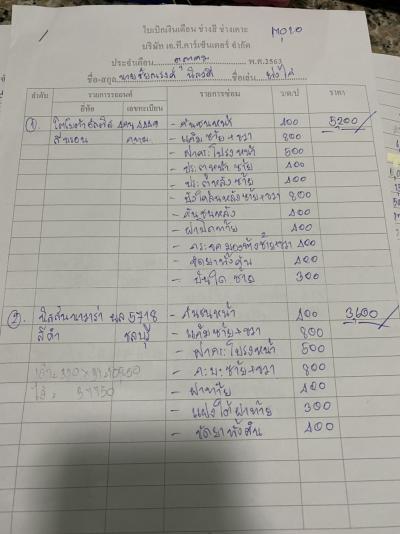 ใบเบิกเงินเดือน ช่างสี ช่างเคาะ
บริษัท เอ.ที.คาร์เซ็นเตอร์ จำกัด
ประจำเดือน ตุลาคม พ.ศ.2563
ชื่อ-สกุล นาย ชื่อเล่น
ลำดับ รายการรถยนต์ รายการซ่อม ว/ด/ป ราคา
ยี่ห้อ เลขทะเบียน
1. โตโยต้าอัลติส - กันชนหน้า 400 5,200
สีบรอน กทม. - แก้มซ้าย+ขวา 800
- ฝากระโปรงหน้า 500
- ประตูหน้าซ้าย 400
- ประตูหลังซ้าย 400
- บังโคลนหลังซ้าย+ขวา 800
- กันชนหลัง 400
- ฝาปิดท้าย 400
- ขวา 400
- ขัดยาทั้งคัน 400
- บันได ซ้าย 300
2. นิสสันนาวาร่า ผล 5718 - กันชนหน้า 400 3,600
สีดำ ชลบุรี - แก้มซ้าย+ขวา 800
- ฝากระโปรงหน้า 500
- ซ้าย+ขวา 800
- ฝาท้าย 400
- แผงใต้ฝาท้าย 300
- ขัดยาทั้งคัน 400